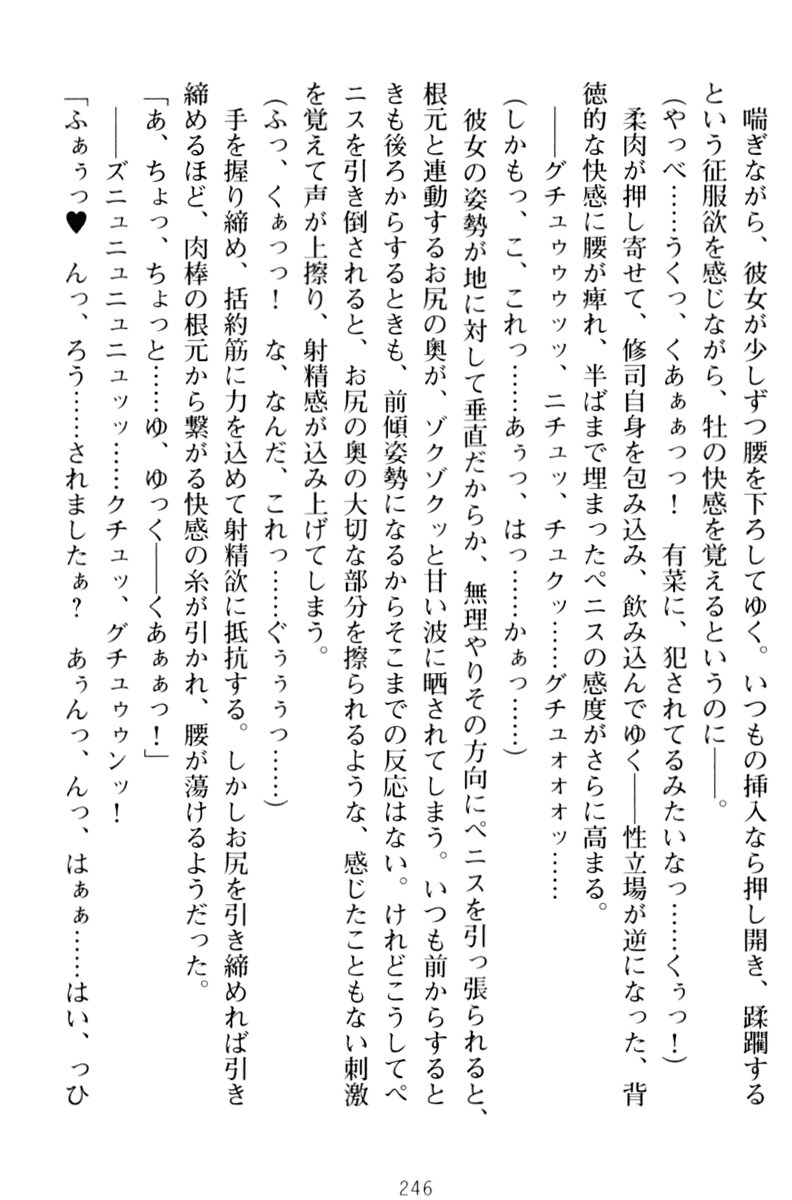 喘ぎながら、彼女が少しずつ腰を下ろしてゆく。いつもの挿入なら押し開き、蹂躙する
という征服欲を感じながら、牡の快感を覚えるというのに――。
(やっべ……うくっ、くあぁぁっっ! 有菜に、犯されてるみたいなっ……くぅっ!)
柔肉が押し寄せて、修司自身を包み込み、飲み込んでゆく――性立場が逆になった、背
徳的な快感に腰が痺れ、半ばまで埋まったペニスの感度がさらに高まる。
――グチュゥゥゥッッ、ニチュッ、チュクッ……グチュォォォッ……
(しかもっ、こ、これっ……あぅっ、はっ……かぁっ……)
彼女の姿勢が地に対して垂直だからか、無理やりその方向にペニスを引っ張られると、
根元と連動するお尻の奥が、ゾクゾクッと甘い波に晒されてしまう。いつも前からすると
きも後ろからするときも、前傾姿勢になるからそこまでの反応はない。けれどこうしてペ
ニスを引き倒されると、お尻の奥の大切な部分を擦られるような、感じたこともない刺激
を覚えて声が上擦り、射精感が込み上げてしまう。
(ふっ、くぁっっ! な、なんだ、これっ……ぐぅぅぅっ……)
手を握り締め、括約筋に力を込めて射精欲に抵抗する。しかしお尻を引き締めれば引き
締めるほど、肉棒の根元から繋がる快感の糸が引かれ、腰が蕩けるようだった。
「あ、ちょっ、ちょっと……ゆ、ゆっく――くあぁぁっ!」
――ズニュニュニュニュッッ……クチュッ、グチュゥゥンッ!
「ふぁぅっ♥ んっ、ろう……されましたぁ? あぅんっ、んっ、はぁぁ……はい、っひ
246